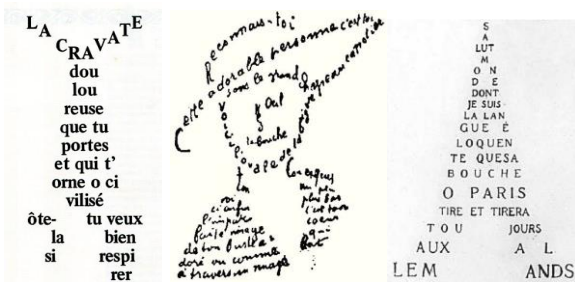 LA CRAVATE
dou
lou
reuse
que tu
portes
et qui t'
orne o ci
vilisé
ôte- tu veux
la bien
si respi
rer
Reconnais-toi
Cette adorable personne c'est toi
sous le grand chapeau canotier
Œil
la bouche
Voici l'ovale de ta figure
ton
cou exquis
voi
ci enfin
l'impar
faite image
de ton buste a
doré vu comme
à travers un nuage
un peu
plus bas
c'est ton
coeur
qui
bat
S
A
LUT
M
O N
D E
DONT
JE SUIS
LA LAN
GUE É
LOQUEN
TE QUESA
BOUCHE
O PARIS
TIRE ET TIRERA
TOU JOURS
AUX A L
LEM ANDS